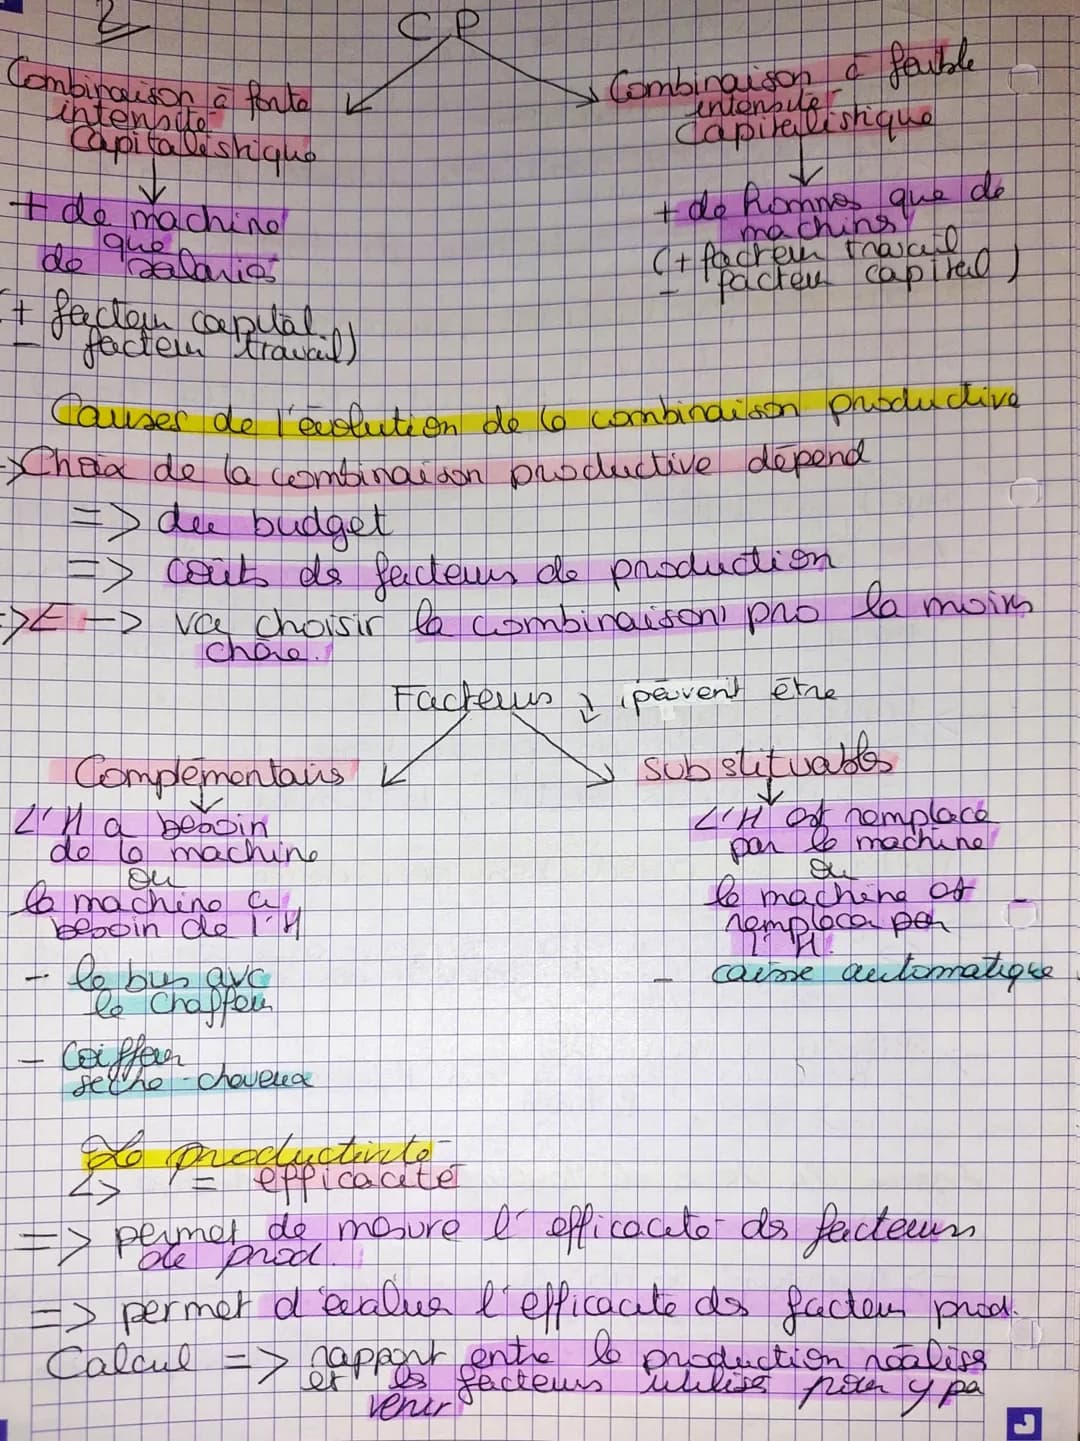 2
CP
Combinaison à forte
intensité
Capitalistique
Combinaison à faible
intensité
Capitalistique
+ de machine
que
de salariés
(+ facteur capital
- facteur travail)
+ de hommes que de
machins
(+ facteur travail
- facteur capital)
Causes de l'évolution de la combinaison productive
->Choix de la combinaison productive dépend
=> du budget
=> coûts ds facteurs de production
=>E -> va choisir la combinaison pro la moins
chère.
Facteurs peuvent être
Complémentairs
L'H a besoin
de la machine
ou
la machine a
besoin de l'H
- le bus avc
le chaffeur
- Coiffeur
sèche-cheveux
substituables
L'H est remplacé
par la machine
ou
la machine est
remplacer par
l'H.
- caisse automatique
La productivité
= efficacité
=> permet de mesure l'efficacité ds facteurs
de prod.
=> permet d'évaluer l'efficacité ds facteurs prod.
Calcul => rapport entre la production réalisé
et ls facteurs utilisés pour y pa
venir